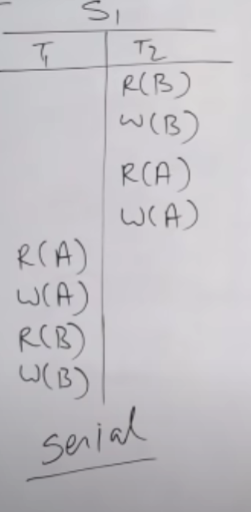 S1
T1 T2
R(B)
W(B)
R(A)
W(A)
R(A)
W(A)
R(B)
W(B)
Serial